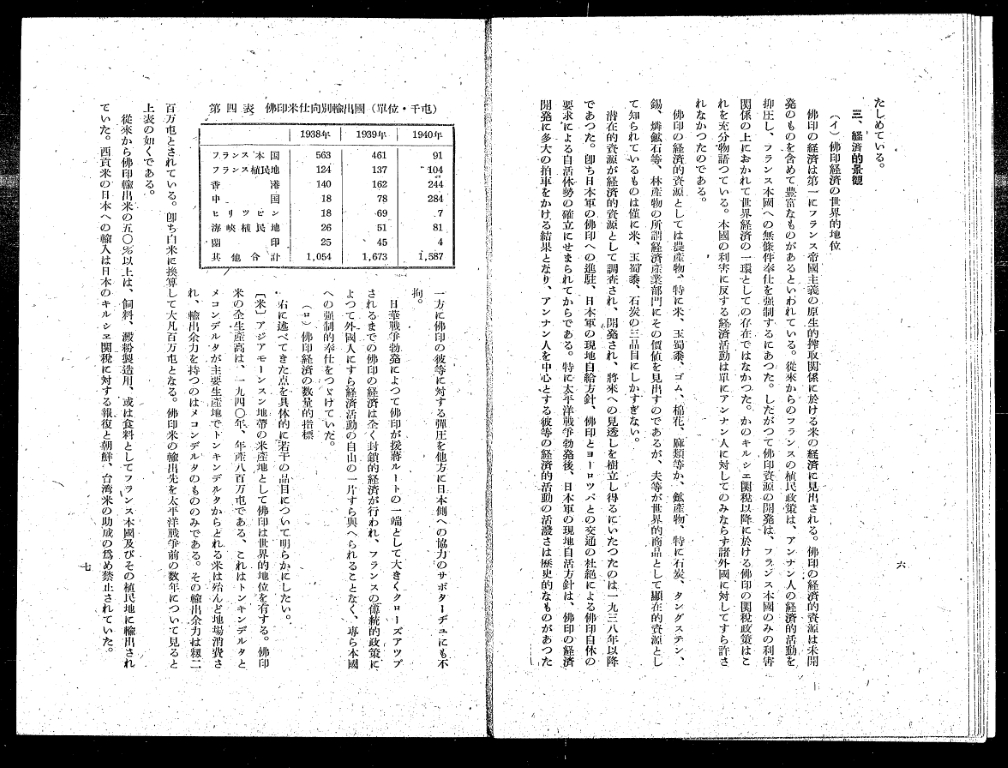 たしめている。
三、經濟的景觀
(イ) 佛印經濟の世界的地位
佛印の經濟は第一にフランス帝國主義の原生的搾取關係に於ける米の經濟に見出される。佛印の經濟的資源は未開
發のものを含めて豊富なものがあるといわれている。從來からのフランスの植民政策は、アンナン人の經濟的活動を
抑圧し、フランス本國への無條件奉仕を强制するにあつた。したがつて佛印資源の開発は、フランス本國のみの利害
關係の上におかれて世界經濟の一環としての存在ではなかつた。かのキルシエ関稅以降に於ける佛印の関稅政策はこ
れを充分物語つている。本國の利害に反する経済活動は単にアンナン人に対してのみならず諸外國に対してすら許さ
れなかつたのである。
佛印の経済的資源としては農産物、特に米、玉蜀黍、ゴム、棉花、麻類等か、鉱産物、特に石炭、タングステン、
錫、燐鉱石等、林産物の所謂経済産業部門にその価値を見出すのであるが、夫等が世界的商品として顕在的資源とし
て知られているものは僅に米、玉蜀黍、石炭の三品目にしかすぎない。
潜在的資源が経済的資源として調査され、開発され、將来への見透しを樹立し得るにいたつたのは一九三八年以降
であつた。卽ち日本軍の佛印への進駐、日本軍の現地自給方針、佛印とヨーロツパとの交通の杜絶による佛印自体の
要求による自活体勢の確立にせまられてからである。特に太平洋戦争勃発後、日本軍の現地自活方針は、佛印の経済
開発に多大の拍車をかける結果となり、アンナン人を中心とする彼等の経済的活動の活潑さは歴史的なものがあつた
六
一方に佛印の彼等に対する彈圧を他方に日本側への協力のサボターヂュにも不
拘。
日華戦爭勃発によつて佛印が援蔣ルートの一端として大きくクローズアツプ
されるまでの佛印の経済は全く封鎖的経済が行われ、フランスの傳統的政策に
よつて外國人にすら経済活動の自由の一片すら與へられることなく、專ら本國
への强制的奉仕をつづけていた。
(ロ) 佛印経済の数量的指標
右に述べてきた点を具体的に若干の品目について明らかにしたい。
〔米〕アジアモーンスン地帶の米産地として佛印は世界的地位を有する。佛印
米の全生産高は、一九四〇年、年産八百万屯である、これはトンキンデルタと
メコンデルタが主要生産地でトンキンデルタからとれる米は殆んど地場消費さ
れ、輸出余力を持つのはメコンデルタのもののみである。その輸出余力は籾二
第四表 佛印米仕向別輸出國(單位・千屯)
1938年 1939年 1940年
フランス本国 563 461 91
フランス植民地 124 137 104
香港 140 162 244
中国 18 78 284
ヒリツピン 18 69 7
海峽植民地 26 51 81
蘭印 25 45 4
其他合計 1,054 1,673 1,587
百万屯とされている。卽ち白米に換算して大凡百万屯となる。佛印米の輸出先を太平洋戦爭前の数年について見ると
上表の如くである。
從來から佛印輸出米の五〇%以上は、飼料、澱粉製造用、或は食料としてフランス本國及びその植民地に輸出され
ていた。西貢米の日本への輸入は日本のキルシヱ関稅に対する報復と朝鮮、台湾米の助成の為め禁止されていた。
七